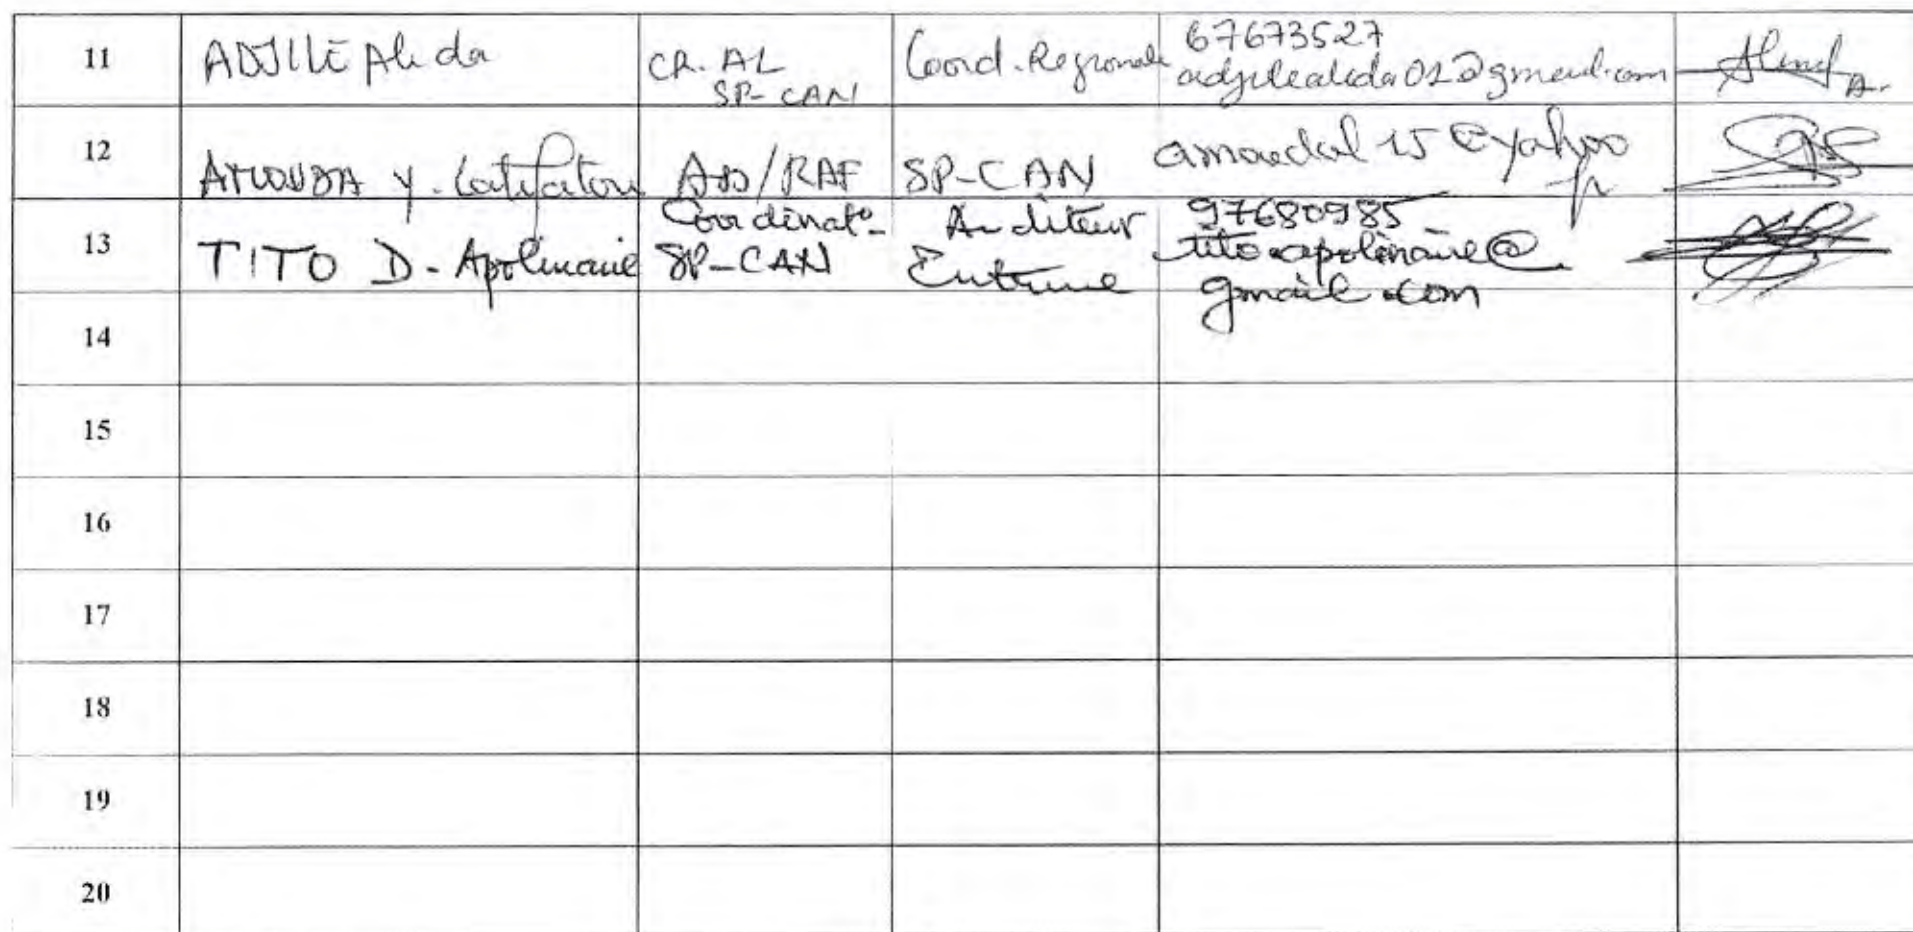 11 ADJILE Alida CR. AL Coord. Regionale 67673527
SP-CAN adjilealida01@gmail.com
12 AMOUDA Y. Latifatou Ass/RAF SP-CAN amoudal15@yahoo
fr
13 TITO D-Apolinaire Coordinat° Auditeur 97680985
SP-CAN Interne titoapolinaire@
gmail.com
14
15
16
17
18
19
20